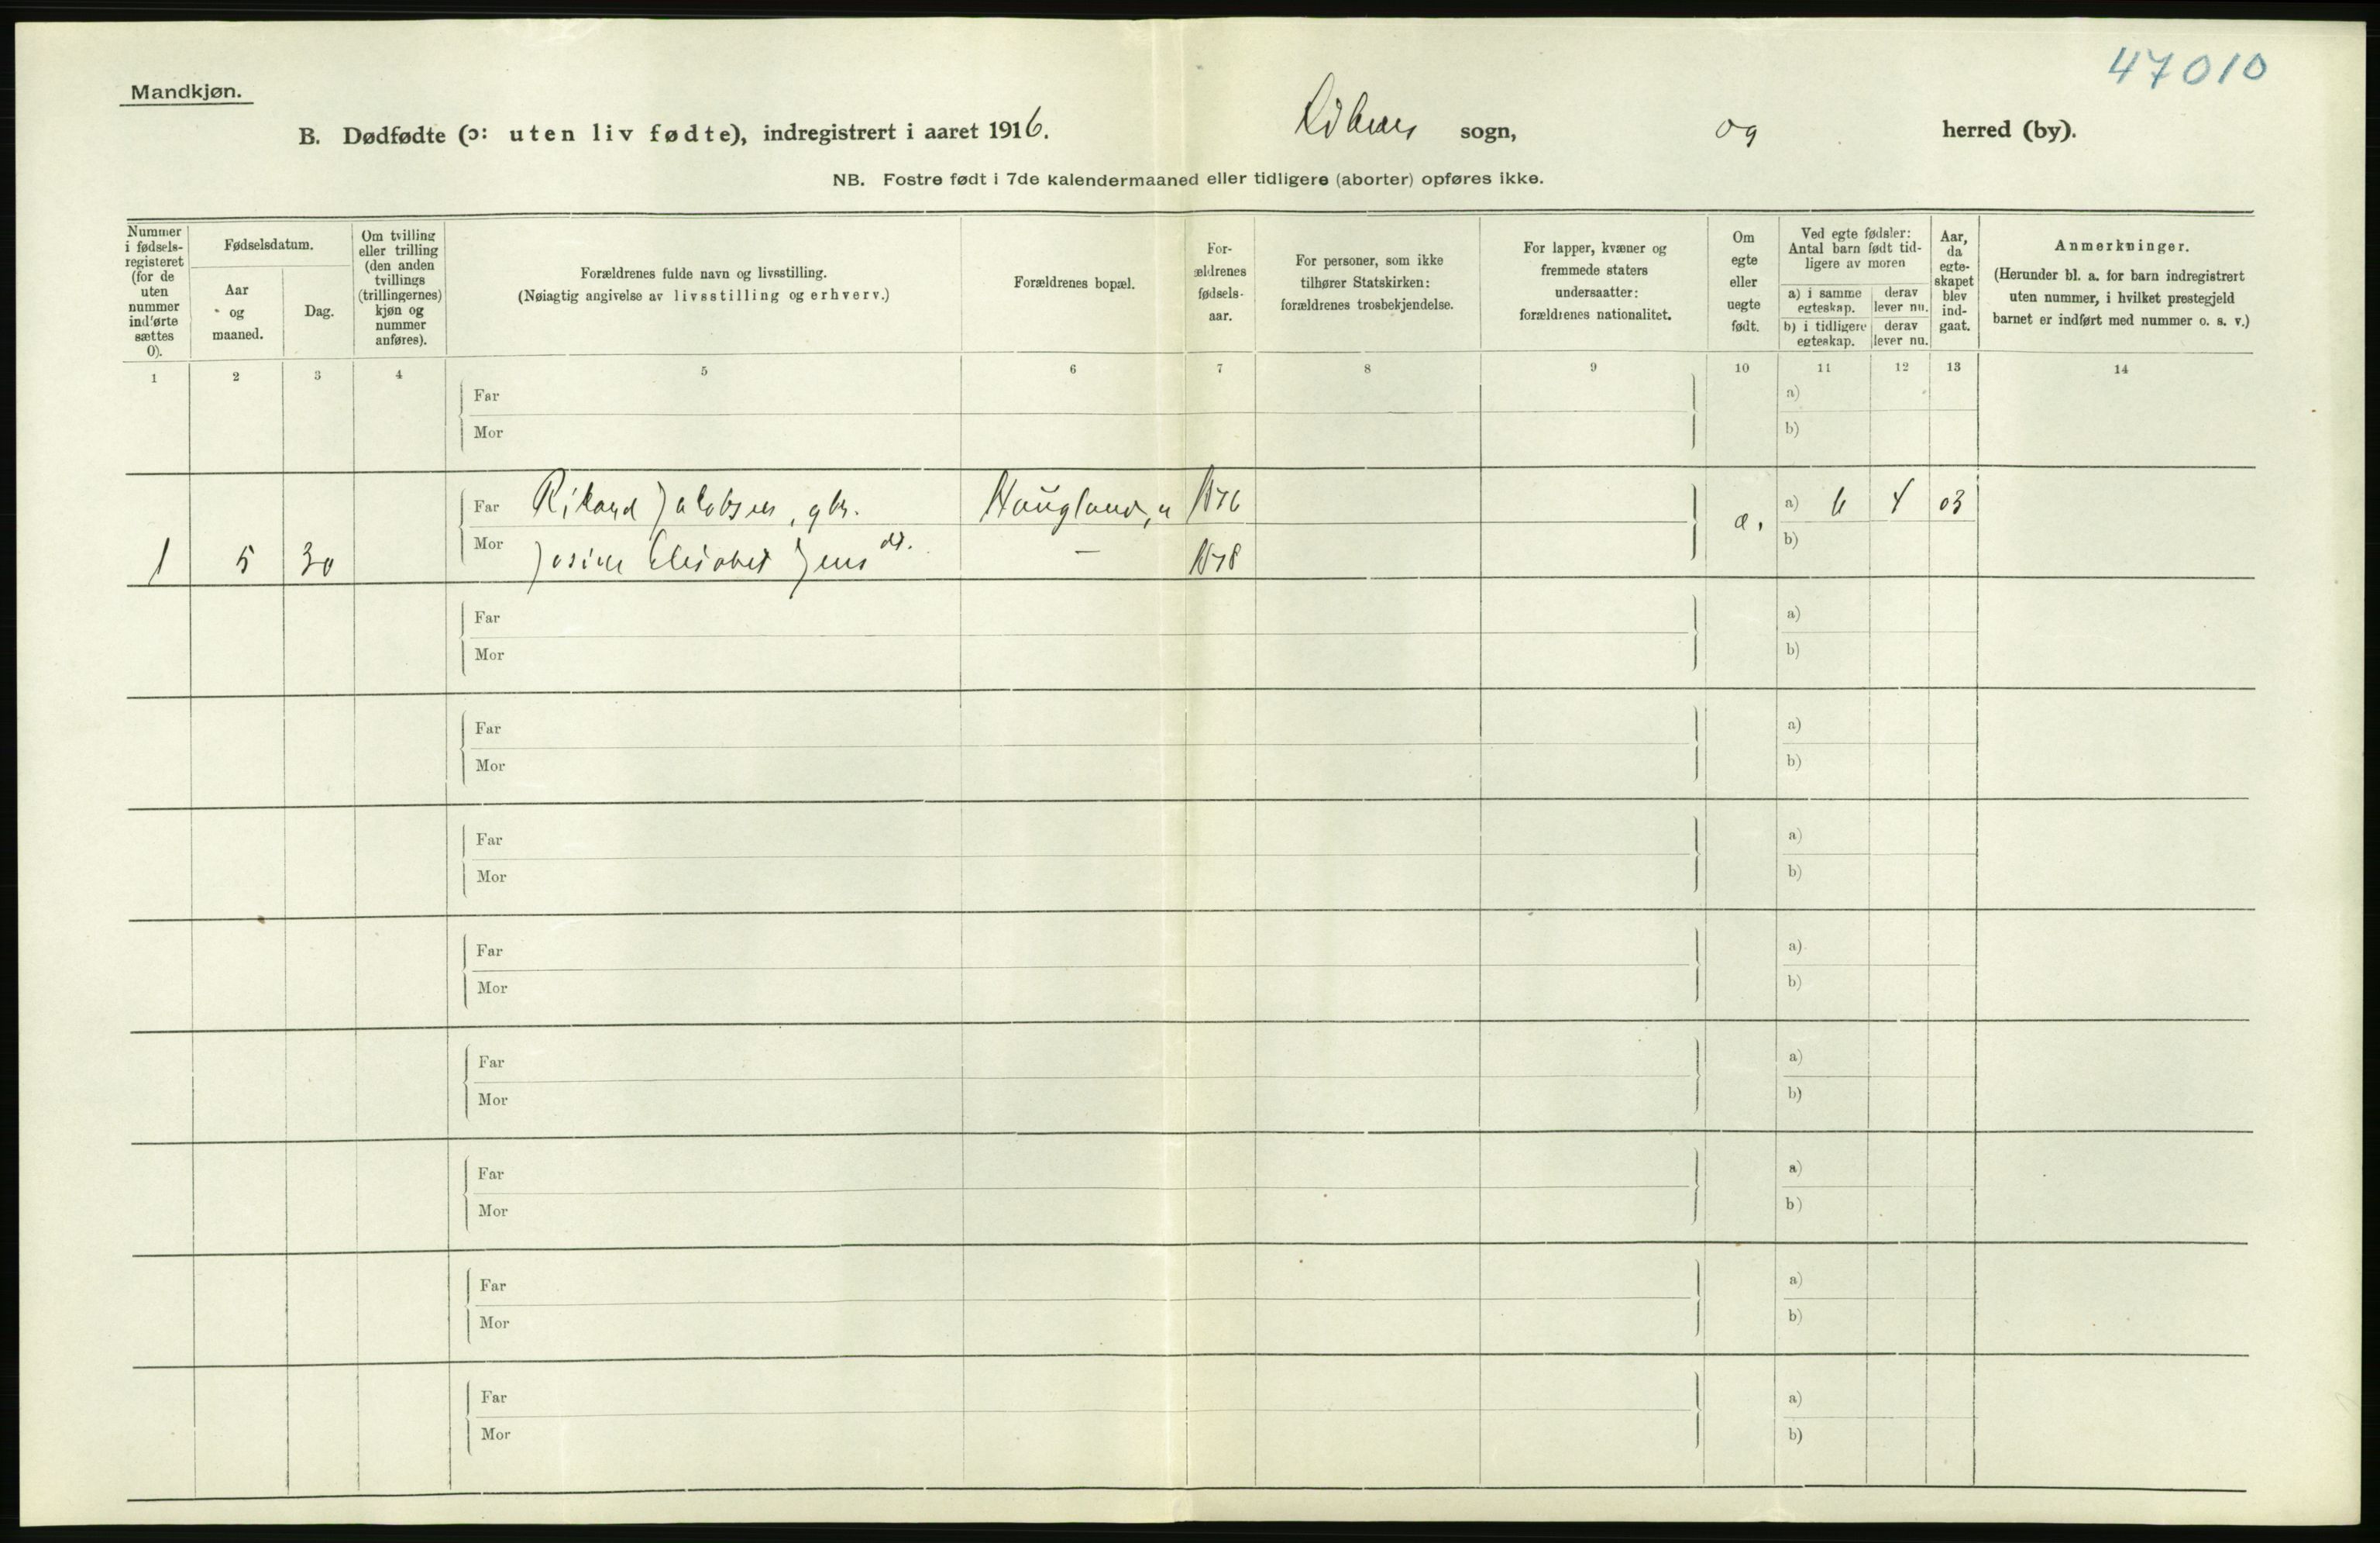 47010
Mandkjøn.
B. Dødfødte (ɔ: uten liv fødte), indregistrert i aaret 1916. sogn, og herred (by).
NB. Fostre født i 7de kalendermaaned eller tidligere (aborter) opføres ikke.
Nummer i fødsels-registeret (for de uten nummer indførte sættes 0).
Fødselsdatum.
Aar og maaned.
Dag.
Om tvilling eller trilling (den anden tvillings (trillingernes) kjøn og nummer anføres).
Forældrenes fulde navn og livsstilling.
(Nøiagtig angivelse av livsstilling og erhverv.)
Forældrenes bopæl.
For-ældrenes fødsels-aar.
For personer, som ikke tilhører Statskirken: forældrenes trosbekjendelse.
For lapper, kvæner og fremmede staters undersaatter: forældrenes nationalitet.
Om egte eller uegte født.
Ved egte fødsler: Antal barn født tid-ligere av moren
a) i samme egteskap.
derav lever nu.
b) i tidligere egteskap.
derav lever nu.
Aar, da egte-skapet blev ind-gaat.
Anmerkninger.
(Herunder bl. a. for barn indregistrert uten nummer, i hvilket prestegjeld barnet er indført med nummer o. s. v.)
1 2 3 4 5 6 7 8 9 10 11 12 13 14
Far a)
Mor b)
Far Rikard Jakobsen, gbr. Haugland, 1876 a) 6 4 03
1 5 30 Mor Josine Elisabet Jens dt. — 1878 b)
Far a)
Mor b)
Far a)
Mor b)
Far a)
Mor b)
Far a)
Mor b)
Far a)
Mor b)
Far a)
Mor b)
Far a)
Mor b)
Far a)
Mor b)